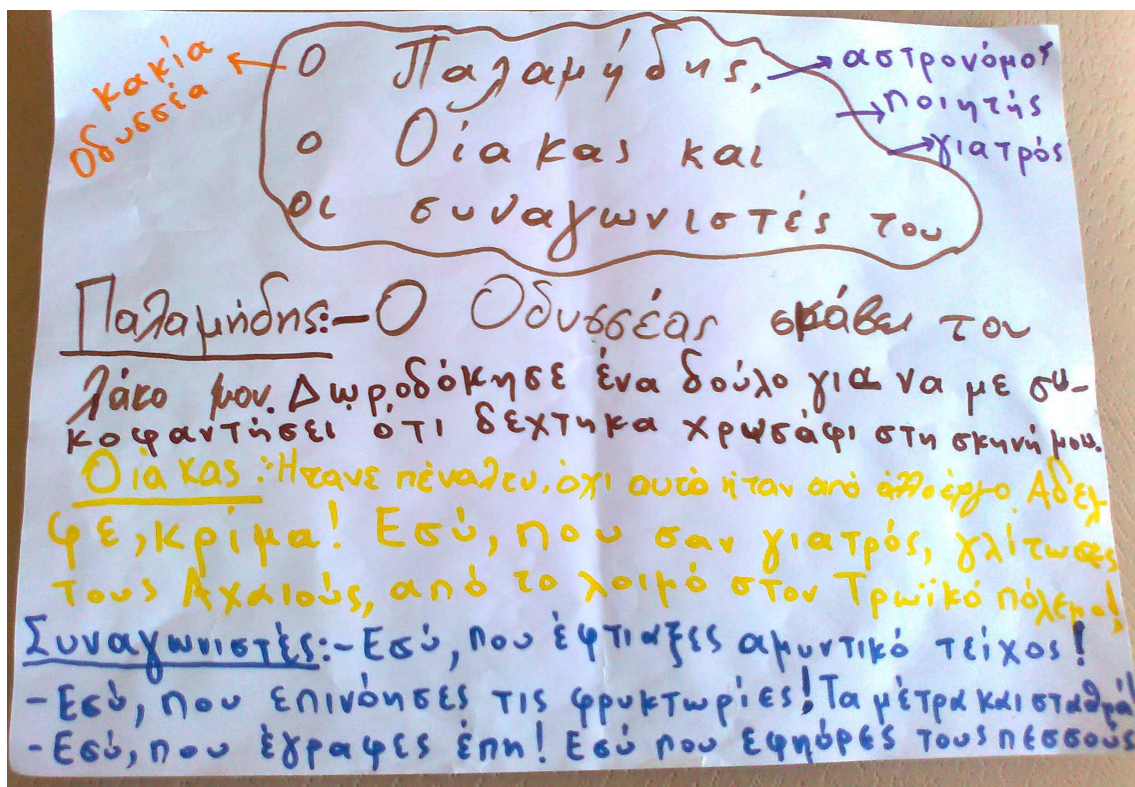 κακία
Οδυσσέα
Ο Παλαμήδης,
ο Οίακας και
οι συναγωνιστές του
αστρονόμος
ποιητής
γιατρός
Παλαμήδης:-Ο Οδυσσέας σκάβει τον
λάκο μου. Δωροδόκησε ένα δούλο για να με συ-
κοφαντήσει ότι δέχτηκα χρυσάφι στη σκηνή μου.
Οίακας: Ήτανε πέναλτυ, όχι αυτό ήταν από άλλο έργο. Αδελ-
φέ, κρίμα! Εσύ, που σαν γιατρός, γλίτωσες
τους Αχαιούς, από το λοιμό στον Τρωϊκό πόλεμο!
Συναγωνιστές:-Εσύ, που έφτιαξες αμυντικό τείχος!
-Εσύ, που επινόησες τις φρυκτωρίες! Τα μέτρα και σταθμά!
-Εσύ, που έγραφες έπη! Εσύ που εφηύρες τους πεσσούς